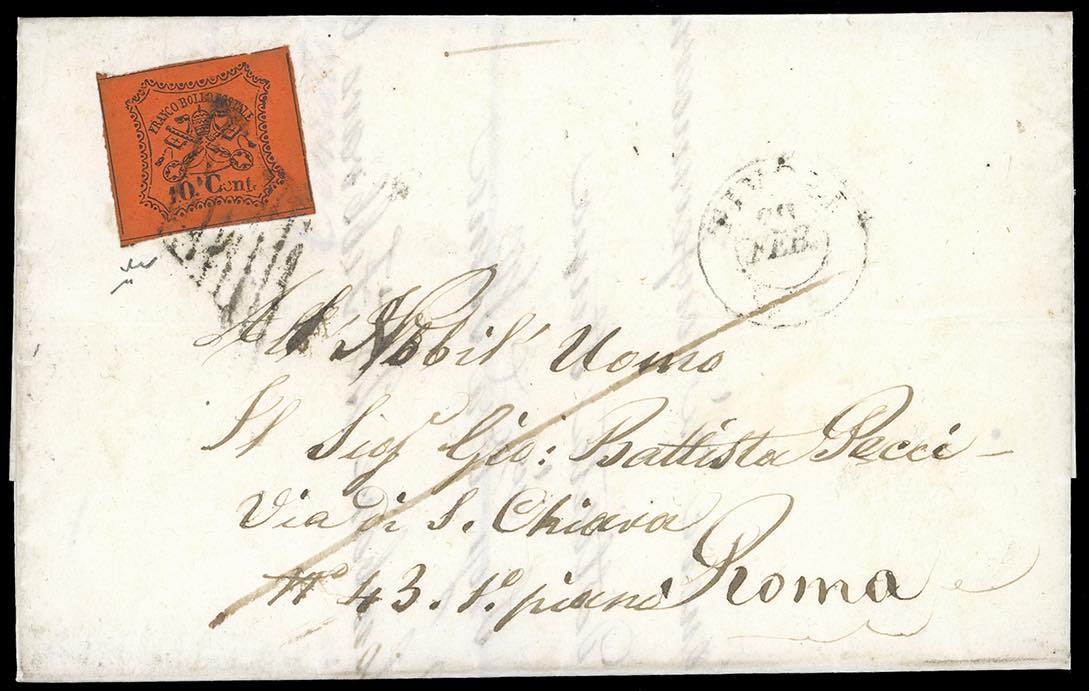 FRANCO BOLLO POSTALE
10 Cent.
TIVOLI
28
FEB.
All' Nobil' Uomo
Il Sigr Gio: Battista Pecci
Via di S. Chiara
No 43. 1o. piano Roma